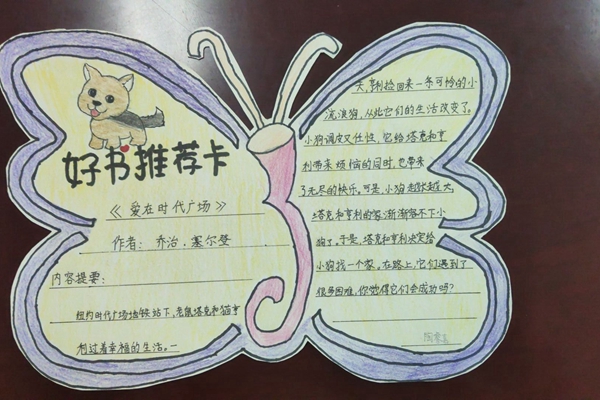 好书推荐卡
《爱在时代广场》
作者：乔治·塞尔登
内容提要：
纽约时代广场地铁站下，老鼠塔克和猫亨
利过着幸福的生活。一
天，亨利捡回来一条可怜的小
流浪狗，从此它们的生活改变了。
小狗调皮又任性，它给塔克和亨
利带来烦恼的同时，也带来
了无尽的快乐。可是，小狗越长越大，
塔克和亨利的家渐渐容不下小
狗了。于是，塔克和亨利决定给
小狗找一个家。在路上，它们遇到了
很多困难，你觉得它们会成功吗？